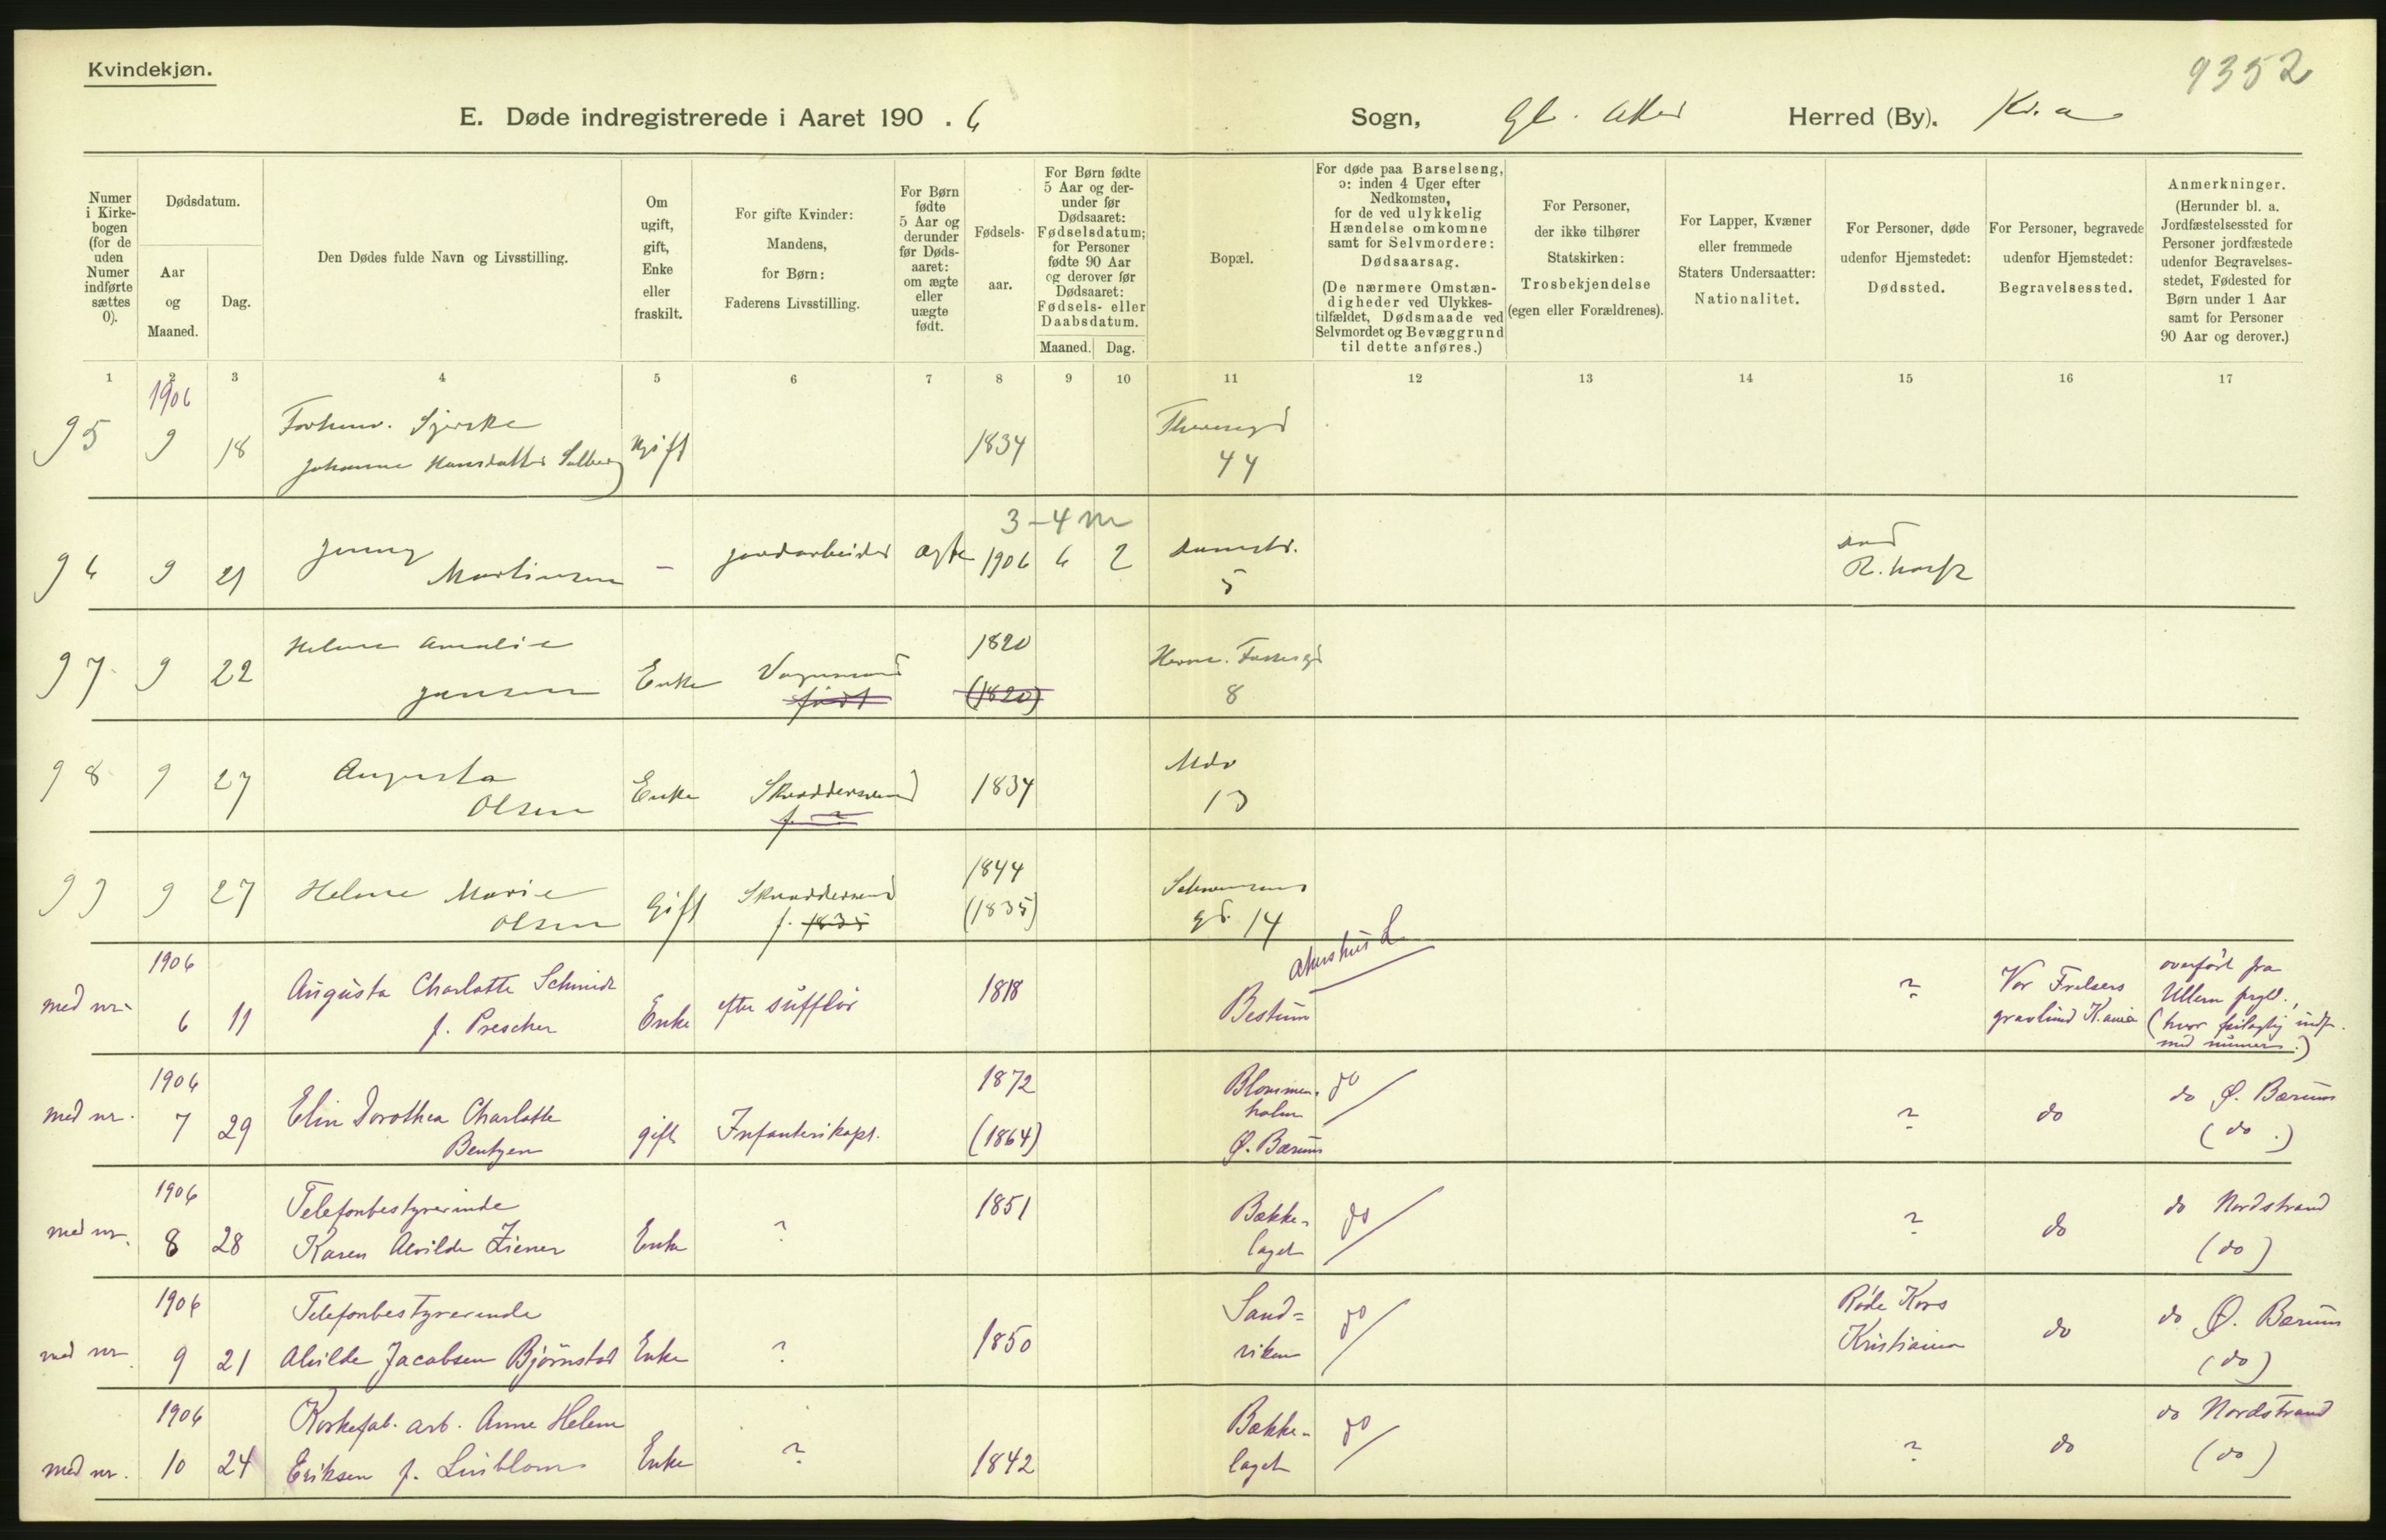 Kvindekjøn.
9352
E. Døde indregistrerede i Aaret 190 . 6 Sogn, Gl. Aker Herred (By). Kr.a
Numer i Kirke-bogen (for de uden Numer indførte sættes 0).
Dødsdatum.
Aar og Maaned.
Dag.
Den Dødes fulde Navn og Livsstilling.
Om ugift, gift, Enke eller fraskilt.
For gifte Kvinder: Mandens, for Børn: Faderens Livsstilling.
For Børn fødte 5 Aar og derunder før Døds-aaret: om ægte eller uægte født.
Fødsels-aar.
For Børn fødte 5 Aar og der-under før Dødsaaret: Fødselsdatum; for Personer fødte 90 Aar og derover før Dødsaaret: Fødsels- eller Daabsdatum.
Maaned. Dag.
Bopæl.
For døde paa Barselseng, ɔ: inden 4 Uger efter Nedkomsten, for de ved ulykkelig Hændelse omkomne samt for Selvmordere: Dødsaarsag.
(De nærmere Omstæn-digheder ved Ulykkes-tilfældet, Dødsmaade ved Selvmordet og Bevæggrund til dette anføres.)
For Personer, der ikke tilhører Statskirken: Trosbekjendelse (egen eller Forældrenes).
For Lapper, Kvæner eller fremmede Staters Undersaatter: Nationalitet.
For Personer, døde udenfor Hjemstedet: Dødssted.
For Personer, begravede udenfor Hjemstedet: Begravelsessted.
Anmerkninger. (Herunder bl. a. Jordfæstelsessted for Personer jordfæstede udenfor Begravelses-stedet, Fødested for Børn under 1 Aar samt for Personer 90 Aar og derover.)
1 2 3 4 5 6 7 8 9 10 11 12 13 14 15 16 17
1906
95 9 18 Johanne Hansdatter Solberg Ugift 1834 44
3-4 m
96 9 21 Jenny Martinsen - jordarbeider ægte 1906 6 2 Damstr. 5
97 9 22 Helene Amalie Jansen Enke Vognmand født 1820 (1820) 8
98 9 27 Augusta Olsen Enke Skræddersvend f. 1834 13
99 9 27 Helene Marie Olsen Gift Skræddersvend f. 1835 1844 (1835) gd. 14
1906
med nr. 6 11 Augusta Charlotte Schmidt f. Prescher Enke efter sufflør 1818 Bestum Akershus ? Vor Frelsers gravlund K.ania overført fra Ullern prgld., (hvor feilagtig indf. med numer.)
1906
med nr. 7 29 Elin Dorothea Charlotte Bentzen gift Infanterikapt. 1872 (1864) Blommenholm Ø. Bærum do ? do do Ø. Bærum (do.)
1906
med nr. 8 28 Telefonbestyrerinde Karen Alvilde Ziener Enke ? 1851 Bække-laget do ? do do Nordstrand (do)
1906
med nr. 9 21 Telefonbestyrerinde Alvilde Jacobsen Bjørnstad Enke ? 1850 Sand=viken do Røde Kors Kristiania do do Ø. Bærum (do)
1906
med nr. 10 24 Korkefab. arb. Anne Helene Eriksen f. Linblom Enke ? 1842 Bække-laget do ? do do Nordstrand (do)